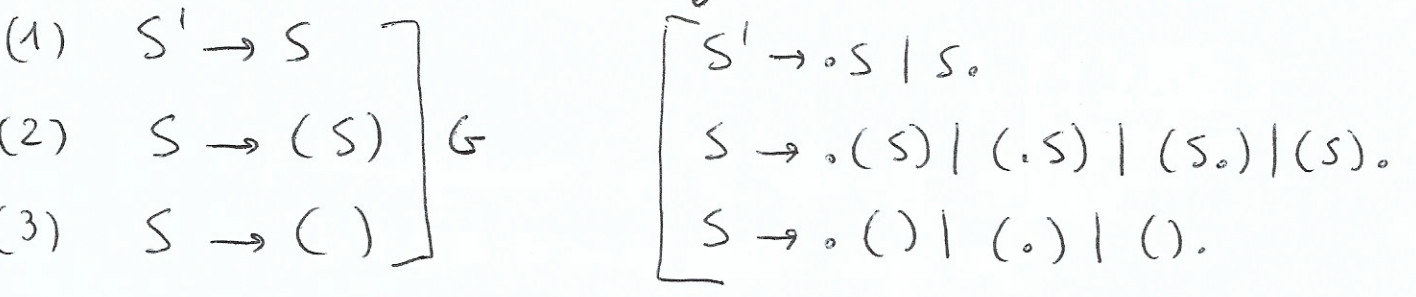 (1) S' → S
(2) S → (S)
(3) S → ()
G
S' → .S | S.
S → .(S) | (.S) | (S.) | (S).
S → .() | (.) | ().